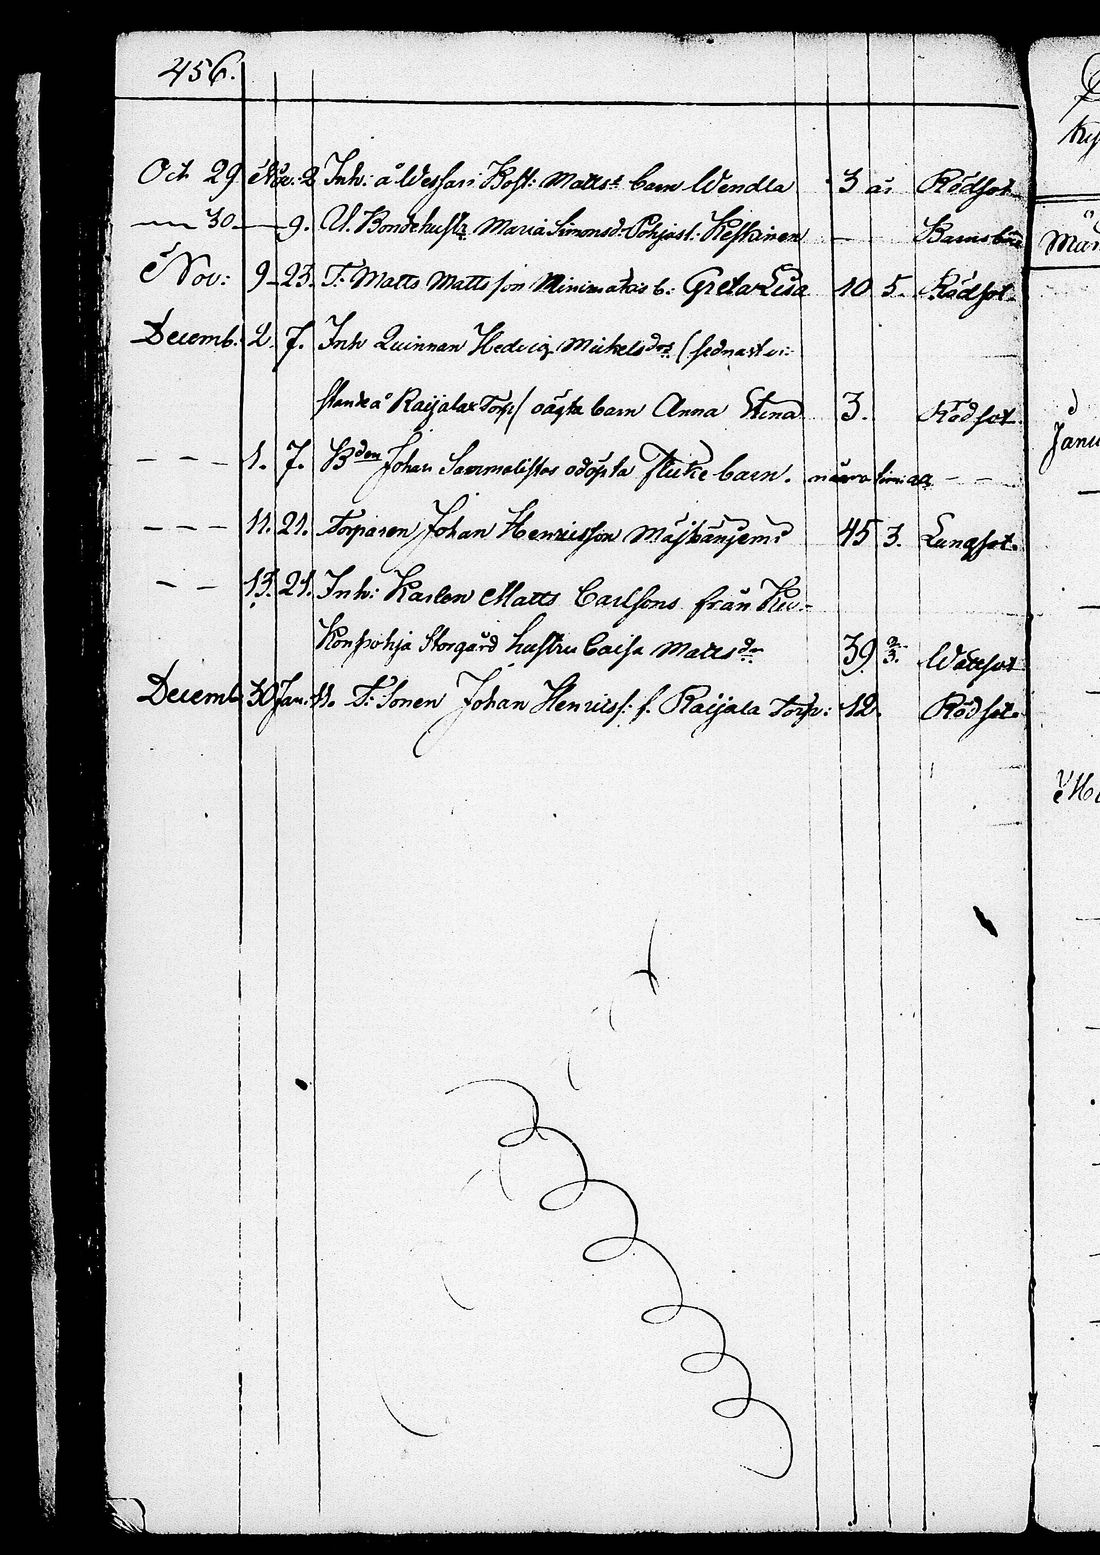 456.
Oct 29 Nov: 2 Inh: å Wessari Kost: Matts: barn Wendla 3 år Rödsot
— 30 — 9. U. Bondehustr Maria Simonsd: Pohjast: Keskinen — Barnsbörd
Nov: 9 23. T: Matts Mattsson Minimäkis b: Greta Lisa 10 5. Rödsot
Decemb. 2. 7. Inh Quinnan Hedvig Mickelsdr (sednast
å Raijala Torp) oägta barn Anna Stina 3. Rödsot
— — — 1. 7. Bden Johan Sammelistos odöpta flicke barn. några timmar — —
— — — 11. 21. Torparen Johan Henricsson 45 3. Lungsot.
— — 13. 21. Inh: Karlen Matts Carlsons från Ku-
Konpohja Storgård hustru Caisa Mattsdr 39 3. Wattsot
Decemb 30 Jan. 11. T: Sonen Johan Henricss: f. Raijala Torp: 12. Rödsot.
Janu